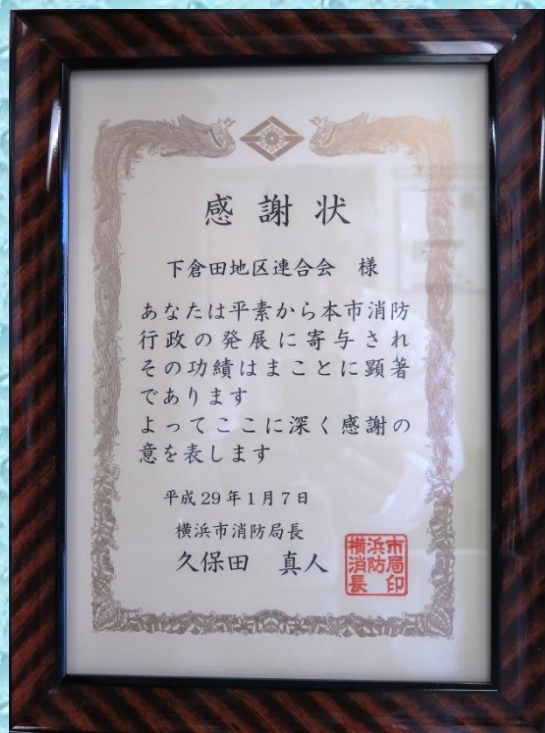 感謝状
下倉田地区連合会 様
あなたは平素から本市消防
行政の発展に寄与され
その功績はまことに顕著
であります
よってここに深く感謝の
意を表します
平成29年1月7日
横浜市消防局長
久保田 真人
横浜市
消防局
長印